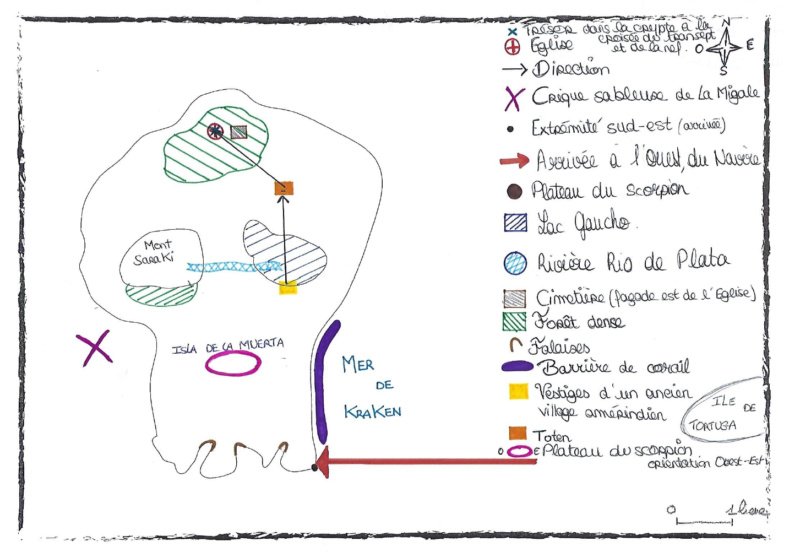 Trésor dans la crypte à la
croisée du transept
et de la nef.
Eglise
N
O
E
S
Direction
Crique sableuse de La Migale
Extrémité sud-est (arrivée)
Arrivée à l'Ouest, du Navire
Plateau du scorpion
Lac Gaucho.
Rivière Rio de Plata
Cimetière (façade est de l'Eglise)
Forêt dense
Falaises
Barrière de corail
Vestiges d'un ancien
village amérindien
Toten
O E Plateau du scorpion
orientation Ouest-Est
Mont
Saraki
ISLA DE LA MUERTA
MER
DE
KRAKEN
ILE DE
TORTUGA
0 1 lieue